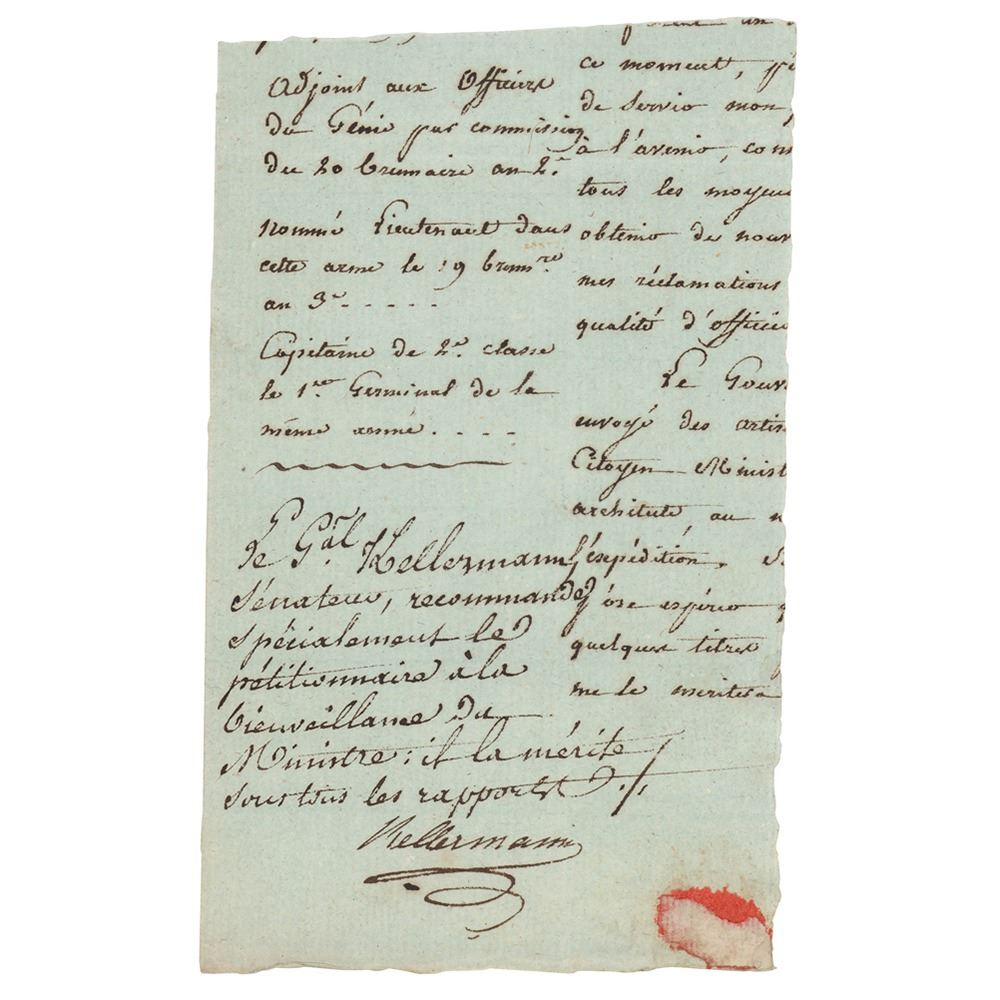 Adjoint aux Officiers
du Génie par commission
du 20 brumaire an 2.e
nommé Lieutenant dans
cette arme le 19 brum.re
an 3.e - - - - -
Capitaine de 2.e classe
le 1.er Germinal de la
même année. - - - -
Le G.al Kellermann,
Sénateur, recommande
spécialement le
pétitionnaire à la
bienveillance du
Ministre: il la mérite
sous tous les rapports ./.
Kellermann
ce moment,
de servir mon
à l'avenir, con
tous les moyen
obtenir de nouv
mes réclamations
qualité d'officie
Le Gouv
envoyé des artis
Citoyen Minist
architecte au
l'expédition.
j'ose espérer q
quelques titres
me le mériter